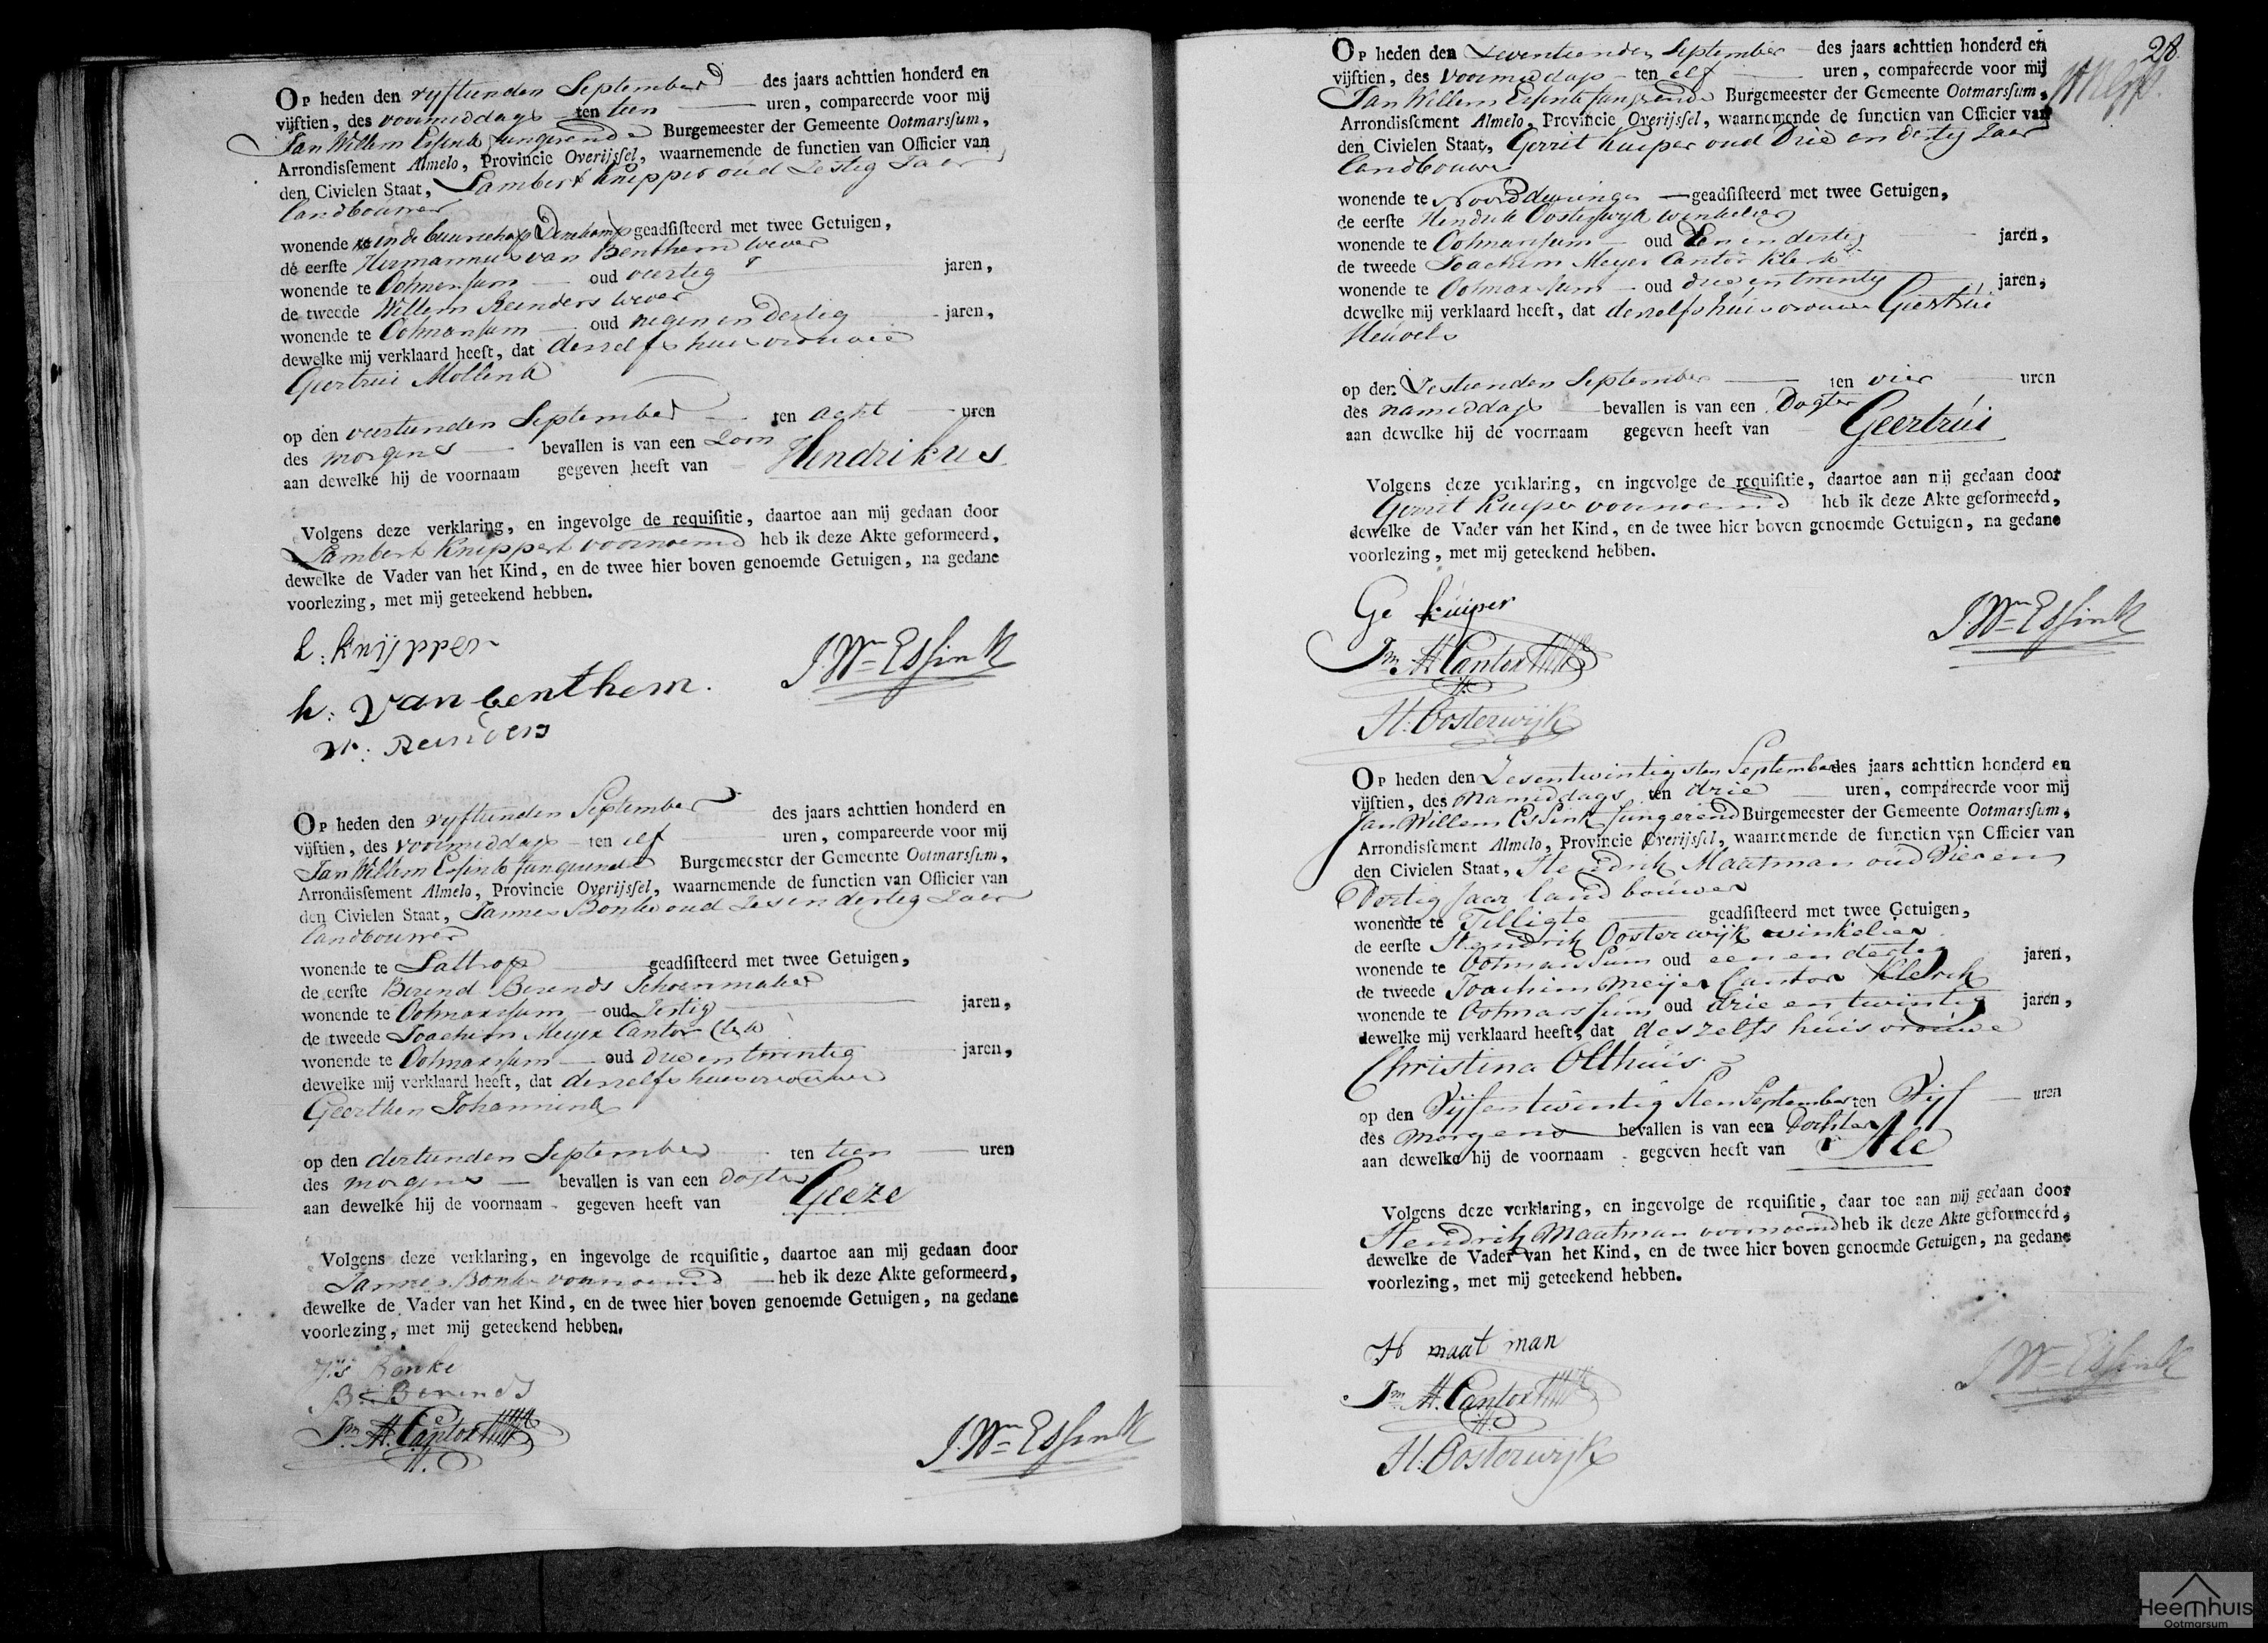 Op heden den vyftienden September des jaars achttien honderd en
vijftien, des voormiddags ten tien uren, compareerde voor mij
Jan Willem Essink fungerende Burgemeester der Gemeente Ootmarsſum,
Arrondisſement Almelo, Provincie Overijsſel, waarnemende de functien van Officier van
den Civielen Staat, Lambert Knippers oud Zestig Jaer
Landbouwer
wonende in de buurschap Denekamp geadſiſteerd met twee Getuigen,
de eerste Hermannus van Benthem wever
wonende te Ootmarsum oud veertig jaren,
de tweede Willem Reinders wever
wonende te Ootmarsum oud negen en dertig jaren,
dewelke mij verklaard heeft, dat deszelfs huisvrouwe
Geertrui Mollink
op den veertienden September ten acht uren
des morgens bevallen is van een Zoon
aan dewelke hij de voornaam gegeven heeft van Hendrikus
Volgens deze verklaring, en ingevolge de requiſitie, daartoe aan mij gedaan door
Lambert Knippert voornoemd heb ik deze Akte geformeerd,
dewelke de Vader van het Kind, en de twee hier boven genoemde Getuigen, na gedane
voorlezing, met mij geteekend hebben.
L: Knijpper
J. Wm Essink
h: van benthem.
W: Reinders
Op heden den vyftienden September des jaars achttien honderd en
vijftien, des voormiddags ten elf uren, compareerde voor mij
Jan Willem Essink fungerende Burgemeester der Gemeente Ootmarsſum,
Arrondisſement Almelo, Provincie Overijsſel, waarnemende de functien van Officier van
den Civielen Staat, Jannes Bonke oud Zes en dertig Jaer
Landbouwer
wonende te Lattrop geadſiſteerd met twee Getuigen,
de eerste Berend Berends Schoenmaker
wonende te Ootmarssum oud Zestig jaren,
de tweede Joachim Meyer Cantor
wonende te Ootmarssum oud drie en twintig jaren,
dewelke mij verklaard heeft, dat deszelfs huisvrouwe
Geerthen Johannink
op den dertienden September ten tien uren
des morgens bevallen is van een dogter
aan dewelke hij de voornaam gegeven heeft van Geeze
Volgens deze verklaring, en ingevolge de requiſitie, daartoe aan mij gedaan door
Jannes Bonke voornoemd heb ik deze Akte geformeerd,
dewelke de Vader van het Kind, en de twee hier boven genoemde Getuigen, na gedane
voorlezing, met mij geteekend hebben.
J:s Bonke
B: Berends
Jm M. Cantor
J. Wm Essink
28.
Op heden den Zeventienden September des jaars achttien honderd en
vijftien, des Voormiddags ten elf uren, compareerde voor mij
Jan Willem Essink fungerende Burgemeester der Gemeente Ootmarsſum,
Arrondisſement Almelo, Provincie Overijsſel, waarnemende de functien van Officier van
den Civielen Staat, Gerrit Kuiper oud Drie en dertig Jaer
Landbouwer
wonende te Noorddeuringen geadſiſteerd met twee Getuigen,
de eerste Hendrik Oosterwijk winkelier
wonende te Ootmarssum oud Een en dertig jaren,
de tweede Joachim Meyer Cantor Klerk
wonende te Ootmarssum oud drie en twintig jaren,
dewelke mij verklaard heeft, dat deszelfs huisvrouwe Geertrui
Heuvels
op den Zestienden September ten vier uren
des namiddags bevallen is van een Dogter
aan dewelke hij de voornaam gegeven heeft van Geertrui
Volgens deze verklaring, en ingevolge de requiſitie, daartoe aan mij gedaan door
Gerrit Kuiper voornoemd heb ik deze Akte geformeerd,
dewelke de Vader van het Kind, en de twee hier boven genoemde Getuigen, na gedane
voorlezing, met mij geteekend hebben.
Ge Kuiper
J. Wm Essink
Jm M. Cantor
H: Oosterwijk
Op heden den Zesentwintigsten September des jaars achttien honderd en
vijftien, des Namiddags ten drie uren, compareerde voor mij
Jan Willem Essink fungerend Burgemeester der Gemeente Ootmarsſum,
Arrondisſement Almelo, Provincie Overijsſel, waarnemende de functien van Officier van
den Civielen Staat, Hendrik Maatman oud Vier en
Dertig Jaar landbouwer
wonende te Tilligte geadſiſteerd met twee Getuigen,
de eerste Hendrik Oosterwijk winkelier
wonende te Ootmarssum oud een en dertig jaren,
de tweede Joachim Meijer Cantor Klerck
wonende te Ootmarssum oud drie en twintig jaren,
dewelke mij verklaard heeft, dat deszelfs huisvrouwe
Christina Olthuis
op den Vijfentwintigsten September ten Vijf uren
des Morgens bevallen is van een Dochter
aan dewelke hij de voornaam gegeven heeft van Ale
Volgens deze verklaring, en ingevolge de requiſitie, daar toe aan mij gedaan door
Hendrik Maatman voornoemd heb ik deze Akte geformeerd,
dewelke de Vader van het Kind, en de twee hier boven genoemde Getuigen, na gedane
voorlezing, met mij geteekend hebben.
H maat man
J Wm Essink
Jm M. Cantor
H: Oosterwijk
Heemhuis
Ootmarsum